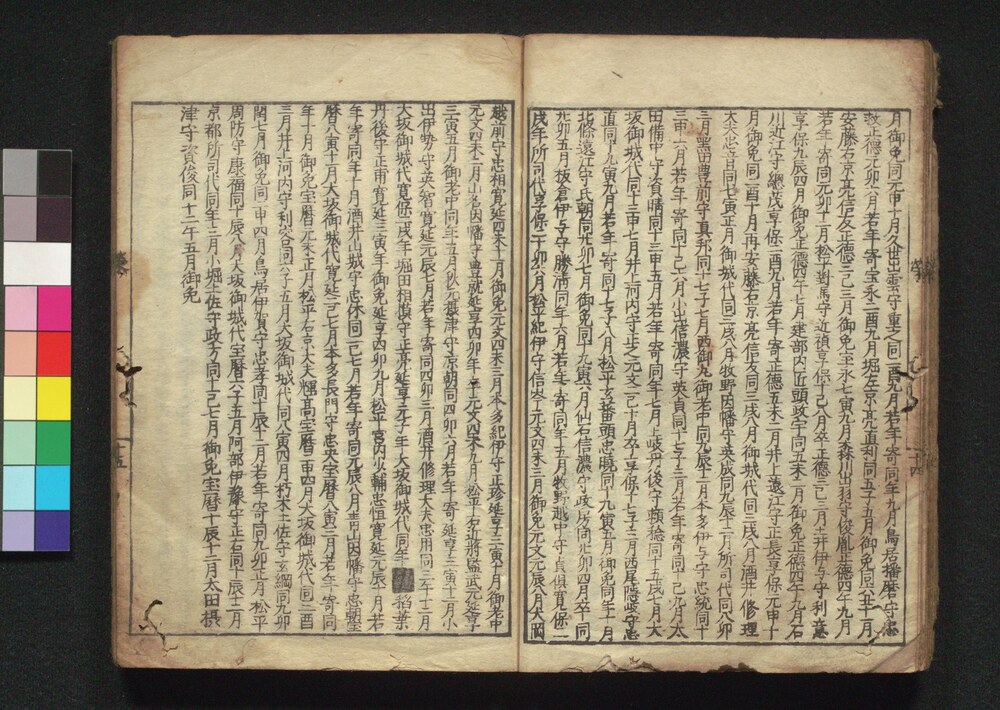 月御免同元申十月久世出雲守重之同二酉九月若年寄同年九月鳥居播磨守忠
救正徳元卯六月若年寄宝永二酉九月堀左京亮直利同五子五月御免同六丑二月
安藤右京亮信友正徳三巳三月御免宝永七寅九月森川出羽守俊胤正徳四午九月
若年寄同元卯十二月松平対馬守近禎享保十巳八月卒正徳三巳三月土井伊与守利意
享保九辰四月御免正徳四午七月建部内匠頭政宇同五未正月御免正徳四午九月石
川近江守総茂享保二酉九月若年寄正徳五未二月井上遠江守正長享保元申十
月御免同二酉十月再安藤右京亮信友同三戌八月御城代同三戌八月酒井修理
大夫忠音同七寅正月御城代同三戌八月牧野因幡守英成同九辰十二月所司代同八卯
三月黒田豊前守直邦同十七子七月西御丸御老中同九辰十二月本多伊与守忠統同十
三申六月若年寄同十巳六月小出信濃守英貞同十七子三月若年寄同十巳九月太
田備中守資晴同十三申五月若年寄同年七月土岐丹後守頼稔同十五戌七月大
坂御城代同十三申七月井上河内守正之元文二巳十月卒享保十七子三月西尾隠岐守忠
直同十九寅九月若年寄同十七子八月松平玄蕃頭忠暁同十九寅五月御免同年十月
北條遠江守氏朝同廿卯七月御免同十九寅六月仙石信濃守政房同廿卯四月卒同
廿卯五月板倉伊与守勝清同年六月若年寄同年五月牧野越中守貞通寛保二
戌年所司代享保二十卯六月松平紀伊守信岑元文四未三月御免元文元辰八月大岡
越前守忠相寛延四未十一月御免元文四未三月本多紀伊守正珍延享三寅十月御老中
元文四未三月山名因幡守豊就延享四卯年卒元文四未九月松平右近将監武元延享
三寅五月御老中同年五月秋元摂津守凉朝同四卯六月若年寄延享三寅十二月小
出伊勢守英智寛延元辰七月若年寄同四卯三月酒井修理大夫忠用同三午十二月
大坂御城代寛保二戌年堀田相模守正亮延享元子年大坂御城代同年稲葉
丹後守正甫寛延三寅年御免延享四卯九月松平宮内少輔忠恒寛延元辰十月若
年寄同年十月酒井山城守忠休同二巳七月若年寄同元辰八月青山因幡守忠朝宝
暦八寅十一月大坂御城代寛延二巳七月本多長門守忠央宝暦八寅三月若年寄同
年十月御免宝暦元未正月松平右京大夫輝高宝暦二申四月大坂御城代同三酉
三月井上河内守利容同六子五月大坂御城代同八寅四月朽木土佐守玄綱同九卯
閏七月御免同二申四月鳥居伊賀守忠孝同十辰十二月若年寄同九卯正月松平
周防守康福同十辰八月大坂御城代宝暦六子五月阿部伊豫守正右同十辰十二月
京都所司代同年三月小堀土佐守政方同十一巳七月御免宝暦十辰十二月太田摂
津守資俊同十二午五月御免